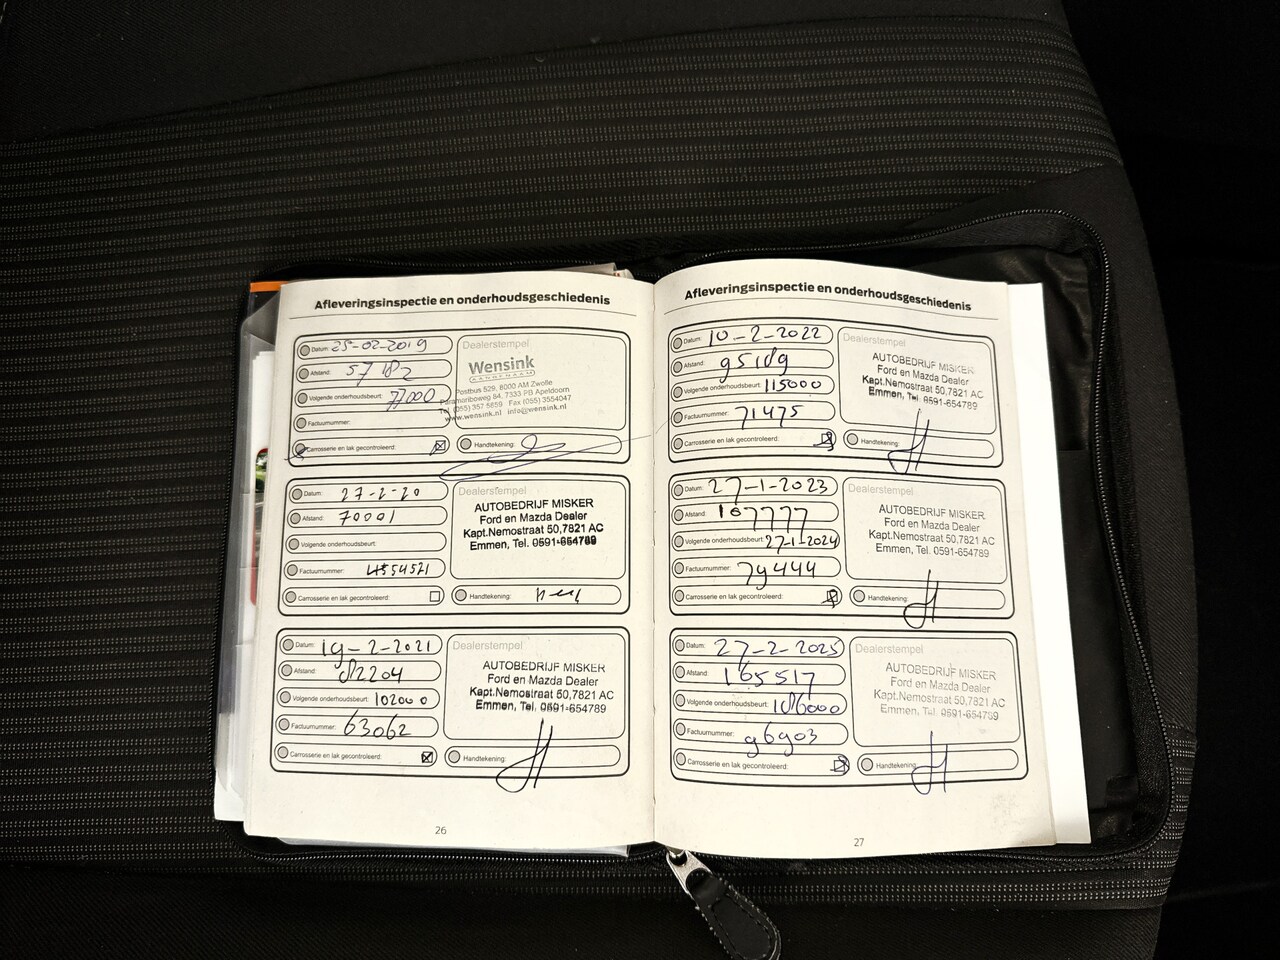 Afleveringsinspectie en onderhoudsgeschiedenis
Datum: 25-02-2019
Afstand: 57182
Volgende onderhoudsbeurt: 77000
Factuurnummer:
Carrosserie en lak gecontroleerd:
Dealerstempel
Wensink
Postbus 529, 8000 AM Zwolle
Paramariboweg 84, 7333 PB Apeldoorn
Tel (055) 357 5859 Fax (055) 3554047
www.wensink.nl info@wensink.nl
Handtekening:
Datum: 27-2-20
Afstand: 70001
Volgende onderhoudsbeurt:
Factuurnummer:
Carrosserie en lak gecontroleerd:
Dealerstempel
AUTOBEDRIJF MISKER
Ford en Mazda Dealer
Kapt.Nemostraat 50,7821 AC
Emmen, Tel. 0591-654789
Handtekening:
Datum: 19-2-2021
Afstand: 82204
Volgende onderhoudsbeurt: 102000
Factuurnummer: 63062
Carrosserie en lak gecontroleerd:
Dealerstempel
AUTOBEDRIJF MISKER
Ford en Mazda Dealer
Kapt.Nemostraat 50,7821 AC
Emmen, Tel. 0591-654789
Handtekening:
26
Afleveringsinspectie en onderhoudsgeschiedenis
Datum: 10-2-2022
Afstand: 95189
Volgende onderhoudsbeurt: 115000
Factuurnummer: 71475
Carrosserie en lak gecontroleerd:
Dealerstempel
AUTOBEDRIJF MISKER
Ford en Mazda Dealer
Kapt.Nemostraat 50,7821 AC
Emmen, Tel. 0591-654789
Handtekening:
Datum: 27-1-2023
Afstand: 107777
Volgende onderhoudsbeurt: 27-1-2024
Factuurnummer: 79444
Carrosserie en lak gecontroleerd:
Dealerstempel
AUTOBEDRIJF MISKER
Ford en Mazda Dealer
Kapt.Nemostraat 50,7821 AC
Emmen, Tel. 0591-654789
Handtekening:
Datum: 27-2-2025
Afstand: 165517
Volgende onderhoudsbeurt: 186000
Factuurnummer: 96903
Carrosserie en lak gecontroleerd:
Dealerstempel
AUTOBEDRIJF MISKER
Ford en Mazda Dealer
Kapt.Nemostraat 50,7821 AC
Emmen, Tel. 0591-654789
Handtekening:
27